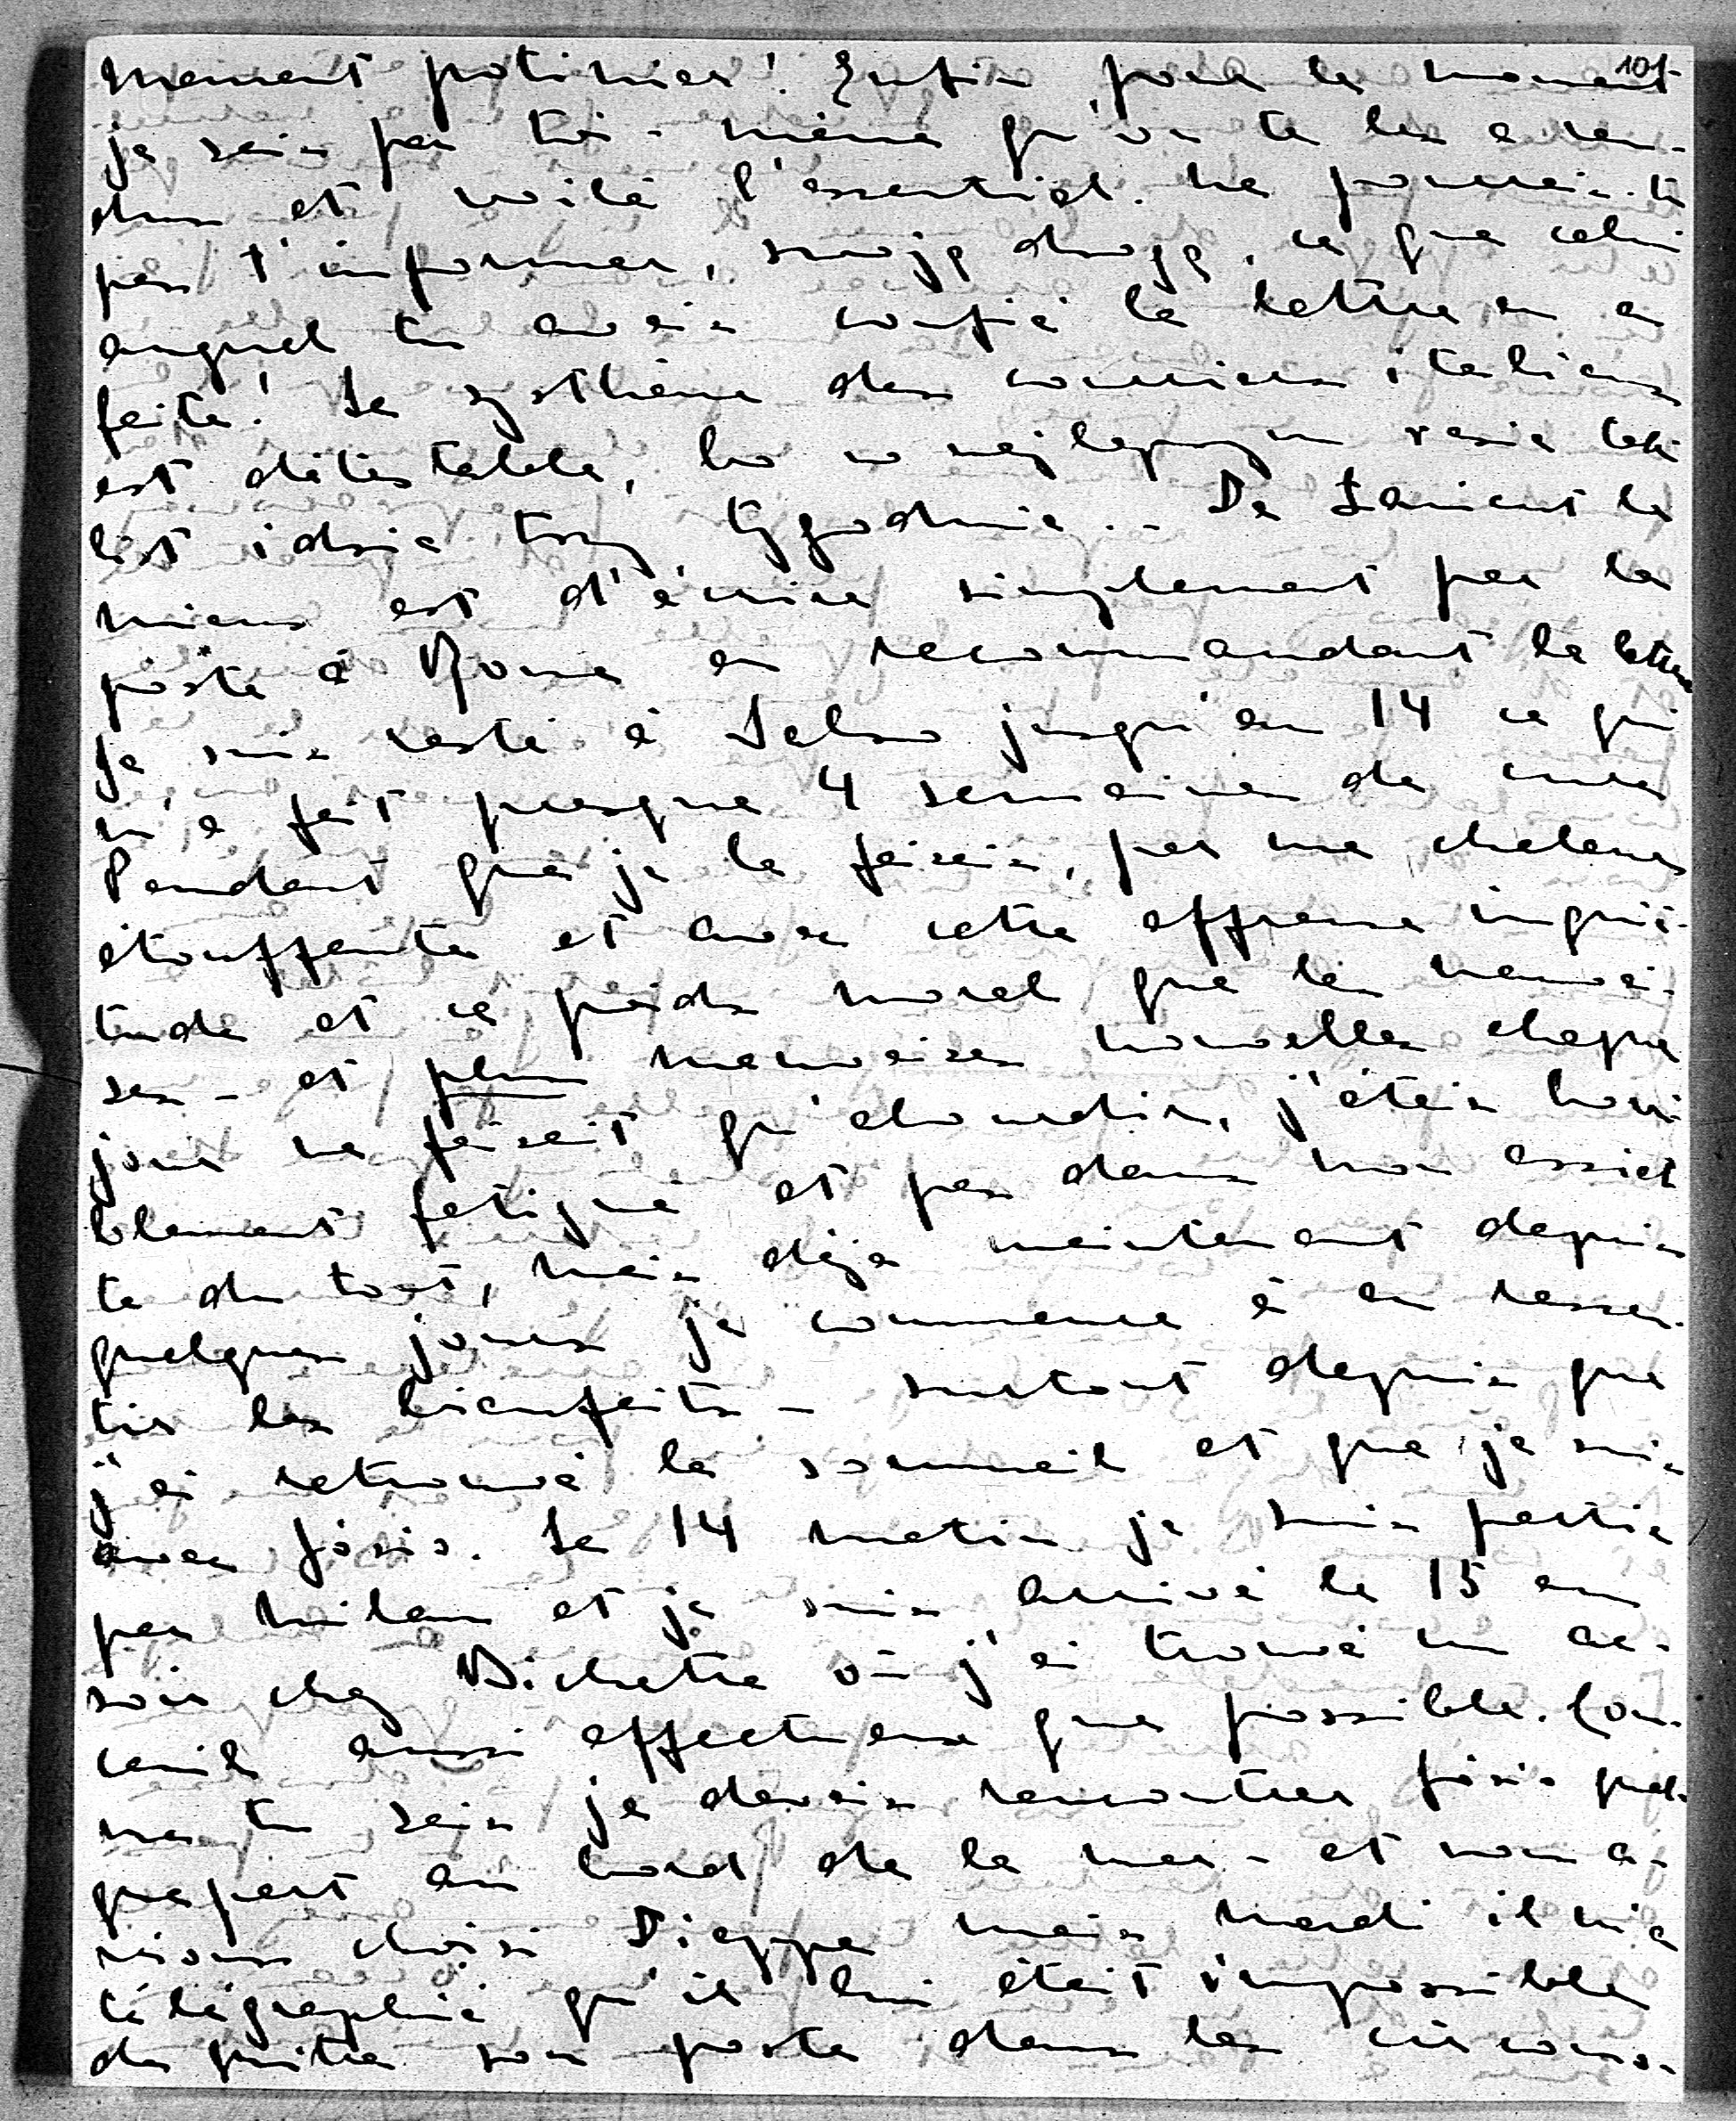 101
moment potinier! Enfin, pour le moment
je sais par toi-même qu'on te les a ren-
dus et voilà l'essentiel. Ne pourrais-tu
pas t'informer, moją drogą, ce que celui
auquel tu avais confié la lettre en a
faite! Le système des courriers italiens
est détestable, bo w najlepszym razie taki
list idzie trzy tygodnie.. De Łańcut le
mieux est d'écrire simplement par la
poste à Rome en recommandant la lettre
Je suis resté à Salso jusqu'au 14 ce qui
m'a fait presque 4 semaines de cure
Pendant que je la faisais, par une chaleur
étouffante et avec cette affreuse inquié-
tude et ce poids moral que les mauvai-
ses - et plus mauvaises nouvelles chaque
jour ne faisait qu'alourdir, j'étais horri
blement fatigué et pas dans mon assiet
te du tout, mais déjà maintenant depuis
quelques jours je commence à en ressen-
tir les bienfaits - surtout depuis que
j'ai retrouvé le sommeil et que je suis
avec Józio. Le 14 matin je suis partie
par Milan et je suis arrivé le 15 au
soir chez Bichette où j'ai trouvé un ac-
cueil aussi affectueux que possible. Com-
me tu sais je devais rencontrer Józio quel-
quepart au bord de la mer - et nous a-
vions choisi Dieppe mais mardi il m'a
télégraphié qu'il lui était impossible
de quitter son poste dans les circons-